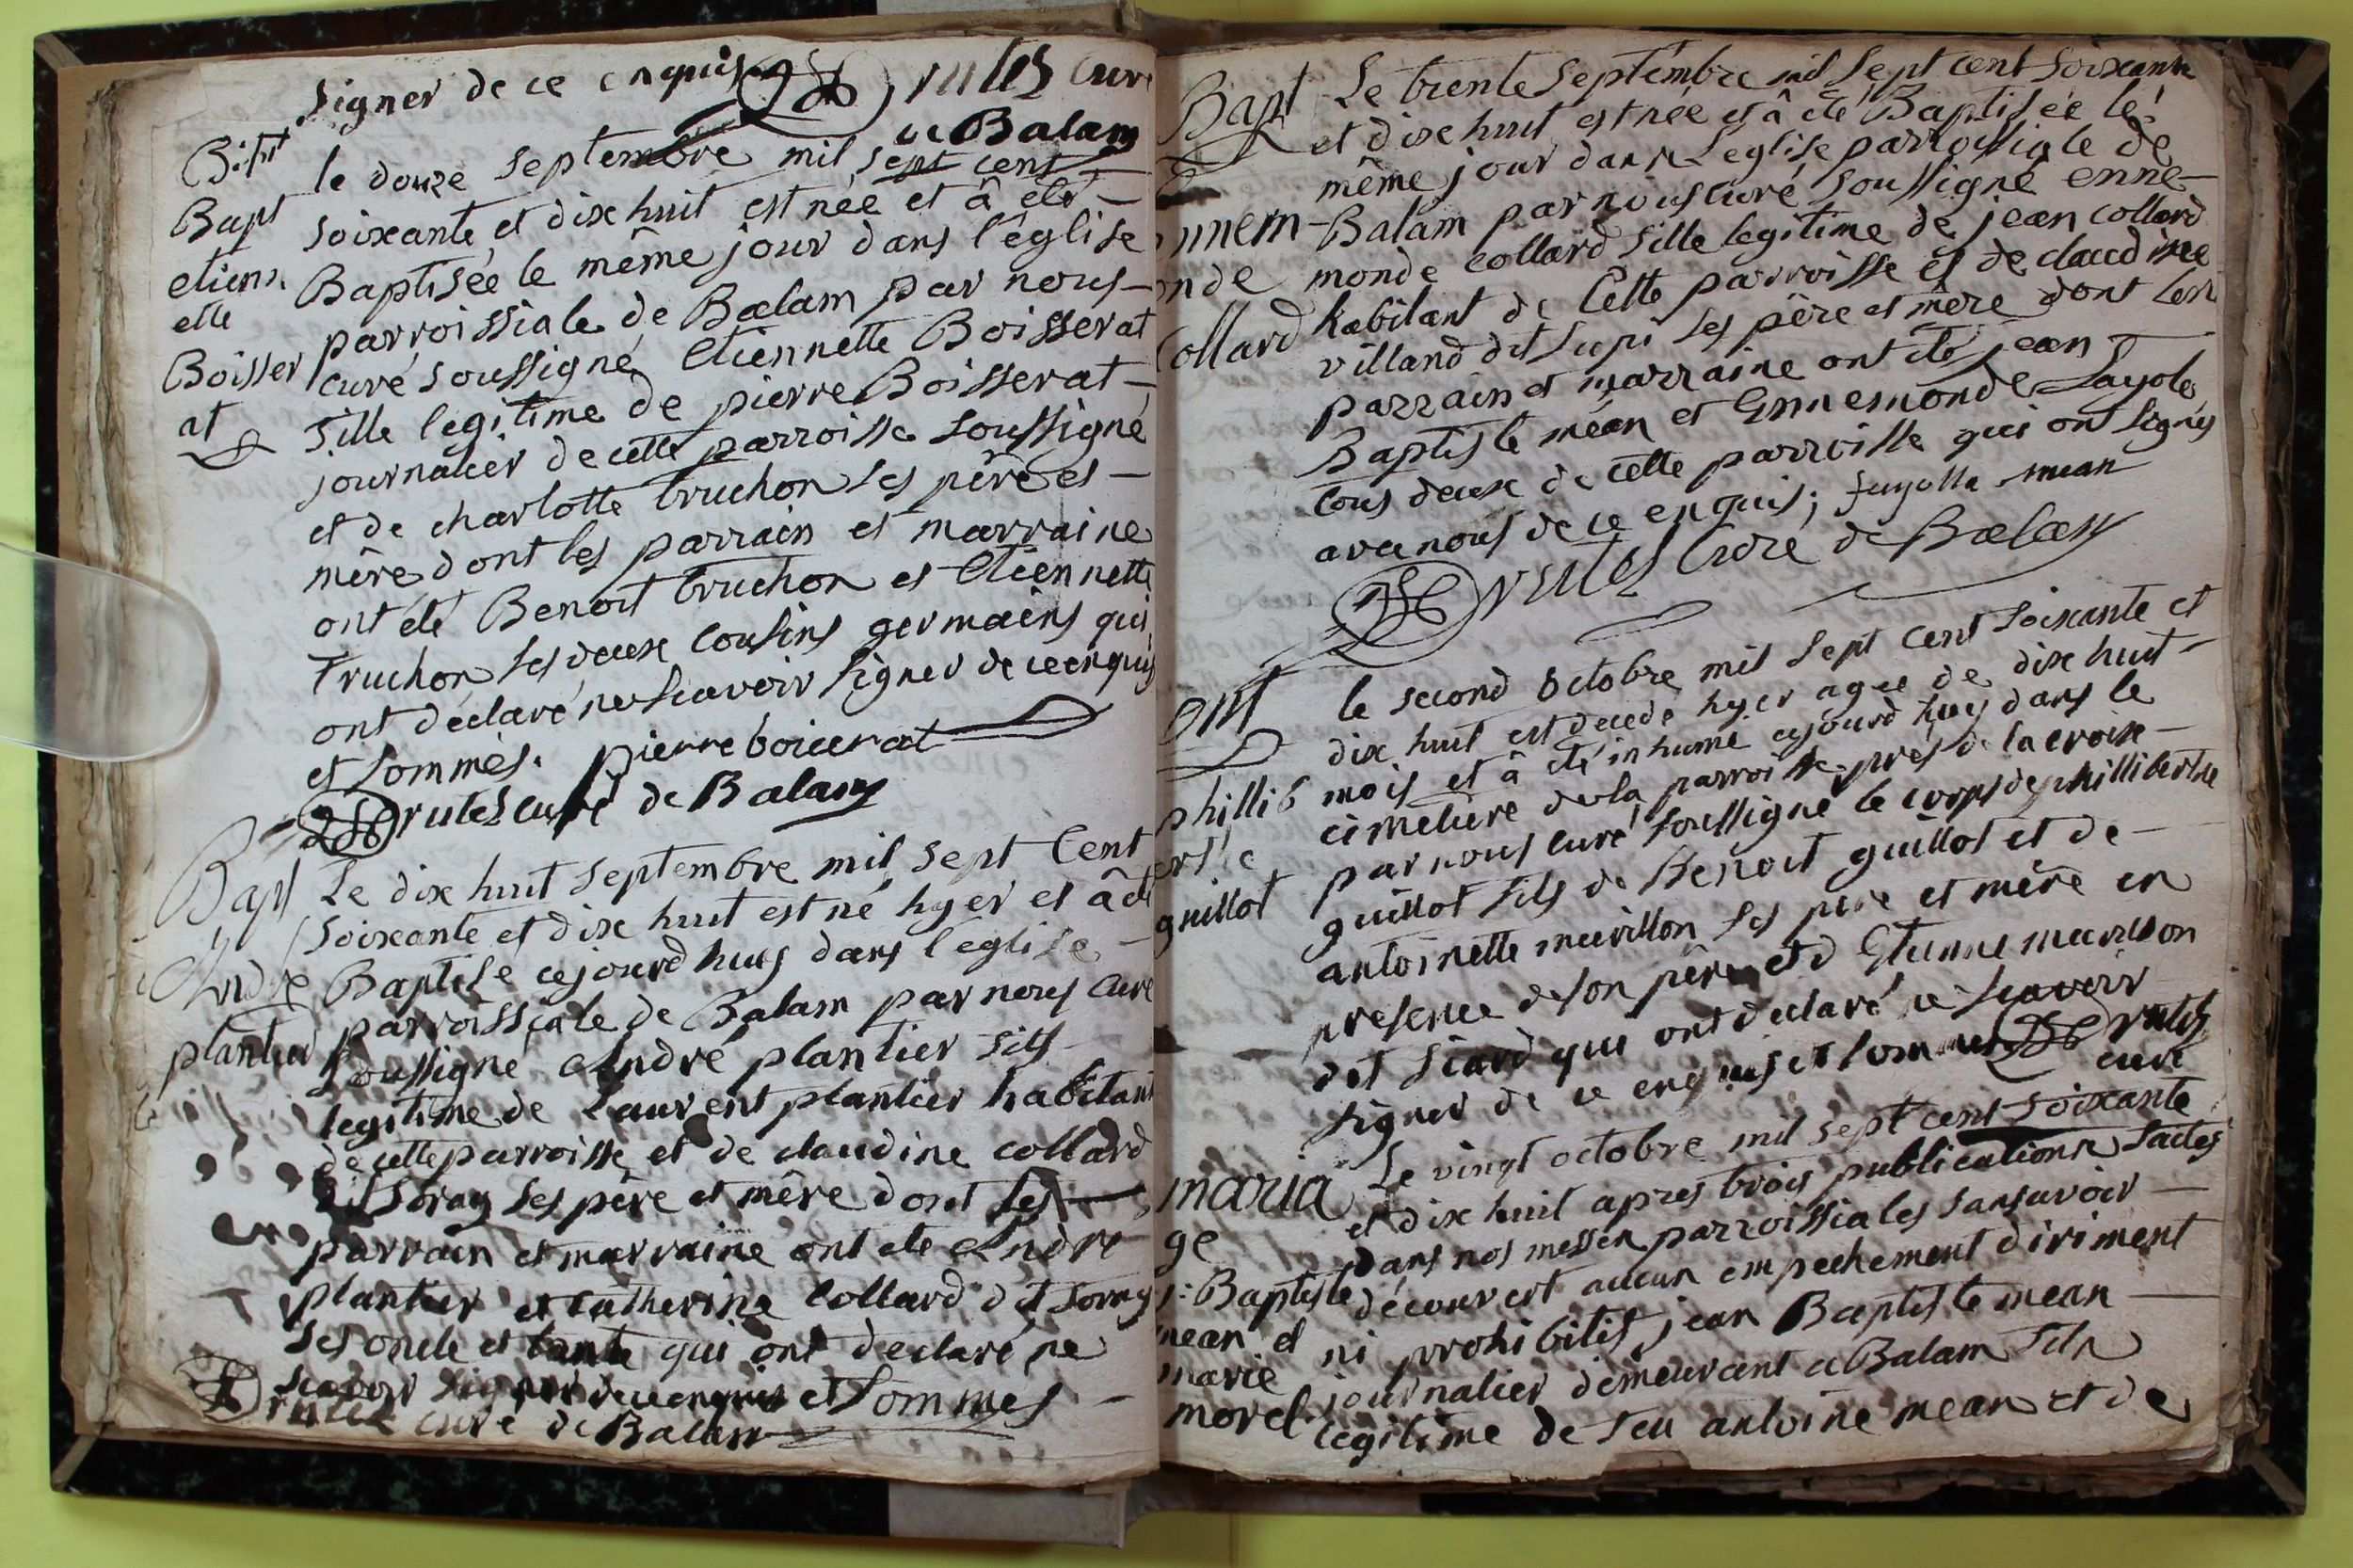 signer de ce enquis rutez curé
de Balam
Bapt
Bapt
etienn
ette
Boisser
at
le douze septembre mil sept cent
soixante et dix huit est née et â été
Baptisée le même jour dans l'église
parroissiale de Balam par nous
curé soussigné Etiennette Boisserat
fille legitime de pierre Boisserat
journalier de cette parroisse soussigné
et de charlotte truchon ses père et
mère dont les parrain et marraine
ont été Benoit truchon et Etiennette
Truchon ses deux cousins germains qui
ont déclaré ne scavoir signer de ce enquis
et sommés. pierre boicerat
rutez curé de Balam
Bapt
André
plantier
Le dix huit septembre mil sept Cent
soixante et dix huit est né hyer et â été
Baptisé cejourd huy dans l'église
parroissiale de Balam par nous curé
soussigné André plantier fils
legitime de Laurent plantier habitant
de cette parroisse et de claudine collard
dit soray ses père et mère dont les
parrain et marraine ont été André
plantier et Catherine Collard dit soray
ses oncle et tante qui ont declaré ne
scavoir signer de ce enquis et sommés
rutez curé de Balam
Bapt
nnem
onde
Collard
Le trente septembre mil sept cent soixante
et dix huit est née et â été Baptisée le
même jour dans l'eglise parroissiale de
Balam par nous curé soussigné enne-
monde collard fille legitime de jean collard
habitant de Cette parroisse et de claudine
villand dit ses père et mère dont les
parrain et marraine ont été jean
Baptiste méan et Ennemonde fayole
tous deux de cette parroisse qui ont signés
avec nous de ce enquis; fayolle mean
rutez Curé de Balam
ont
phillib
ert
guillot
le second octobre mil sept cent soixante et
dix huit est decedé hyer agée de dix huit
mois et â été inhumé cejourd huy dans le
cimetiere de la parroisse près de la croix
par nous curé soussigné le corps de phillibert
guillot fils de Benoit guillot et de
antoinette meurillon ses père et mère en
presence de son père et d Etienne meurillon
dit siard qui ont declaré ne scavoir
signer de ce enquis et sommés rutez
curé
maria
ge
j: Baptiste
mean et
marie
morel
Le vingt octobre mil sept cent soixante
et dix huit apres trois publications faites
dans nos messes parroissiales sans avoir
découvert aucun empechement diriment
ni prohibitif, jean Baptiste mean
journalier demeurant a Balam fils
legitime de feu antoine mean et de